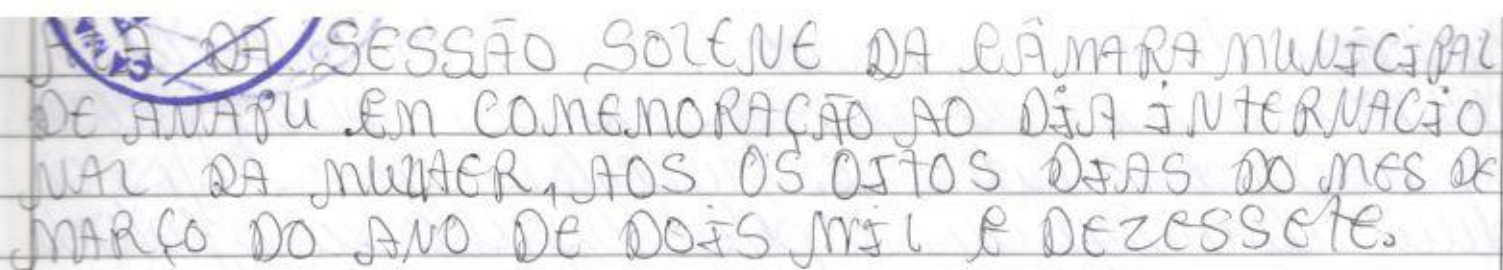 ATA DA SESSÃO SOLENE DA CÂMARA MUNICIPAL
DE ANAPU EM COMEMORAÇÃO AO DIA INTERNACIO
NAL DA MULHER, AOS OS OITOS DIAS DO MES DE
MARÇO DO ANO DE DOIS MIL E DEZESSETE.